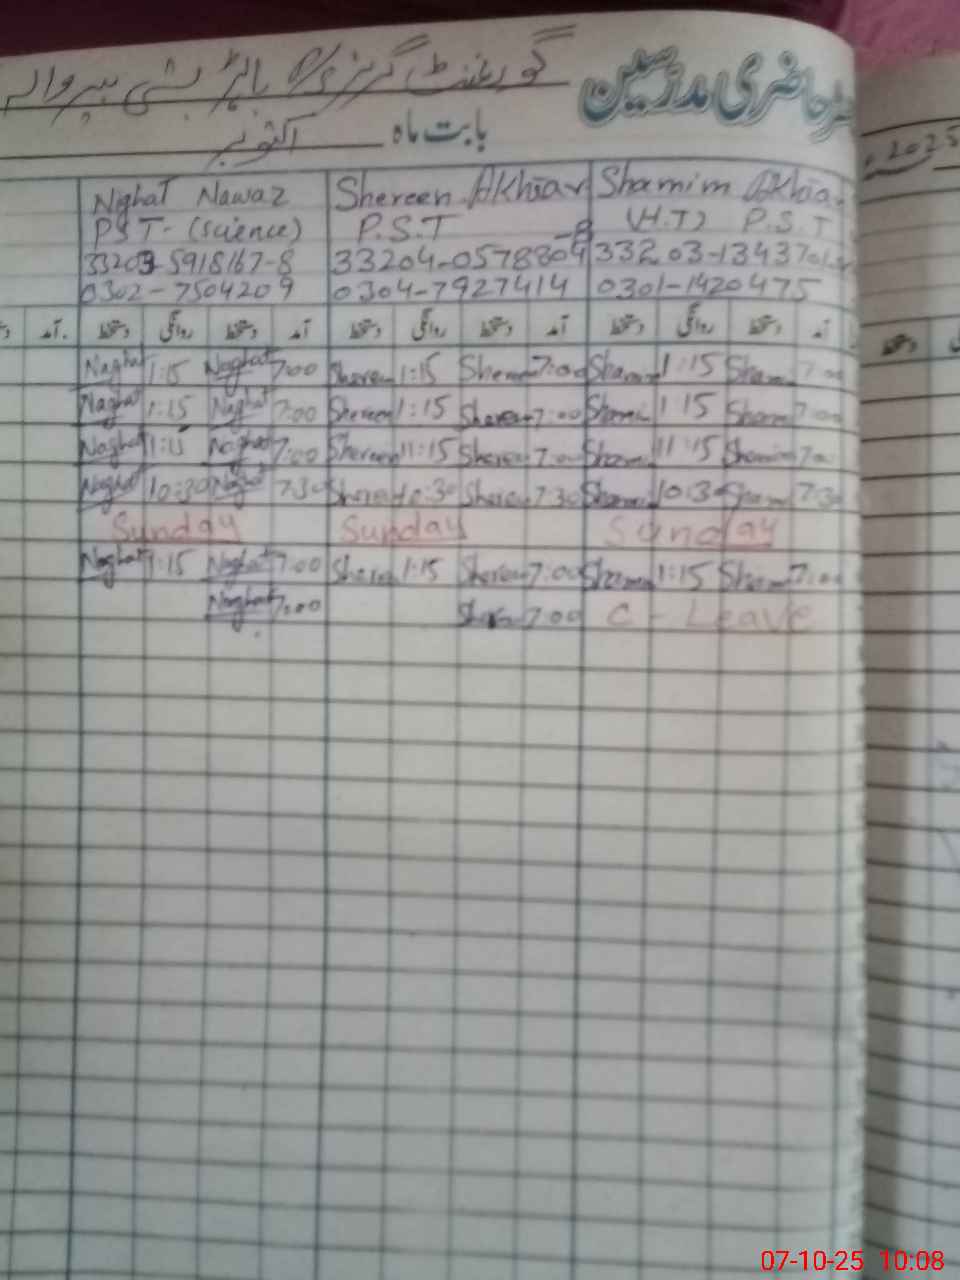 حاضری مدرسین گورنمنٹ گرلز
بابت ماہ اکتوبر
2025
Nighat Nawaz Shereen Akhtar Shamim Akhtar
PST- (Science) P.S.T (H.T) P.S.T
33203-5918167-8 33204-0578804-8 33203-1343701
0302-7504209 0304-7927414 0301-1420475
آمد دستخط روانگی دستخط آمد دستخط روانگی دستخط آمد دستخط روانگی دستخط آمد
Naghat 1:15 Naghat 7:00 Shereen 1:15 Shereen 7:00 Shamim 1:15 Shamim 7:00
Naghat 1:15 Naghat 7:00 Shereen 1:15 Shereen 7:00 Shamim 1:15 Shamim 7:00
Naghat 1:15 Naghat 7:00 Shereen 11:15 Shereen 7:00 Shamim 11:15 Shamim 7:00
Naghat 10:30 Naghat 7:30 Shereen 10:30 Shereen 7:30 Shamim 10:30 Shamim 7:30
Sunday Sunday Sunday
Naghat 1:15 Naghat 7:00 Shereen 1:15 Shereen 7:00 Shamim 1:15 Shamim 7:00
Naghat 7:00 Shereen 7:00 C - Leave
07-10-25 10:08